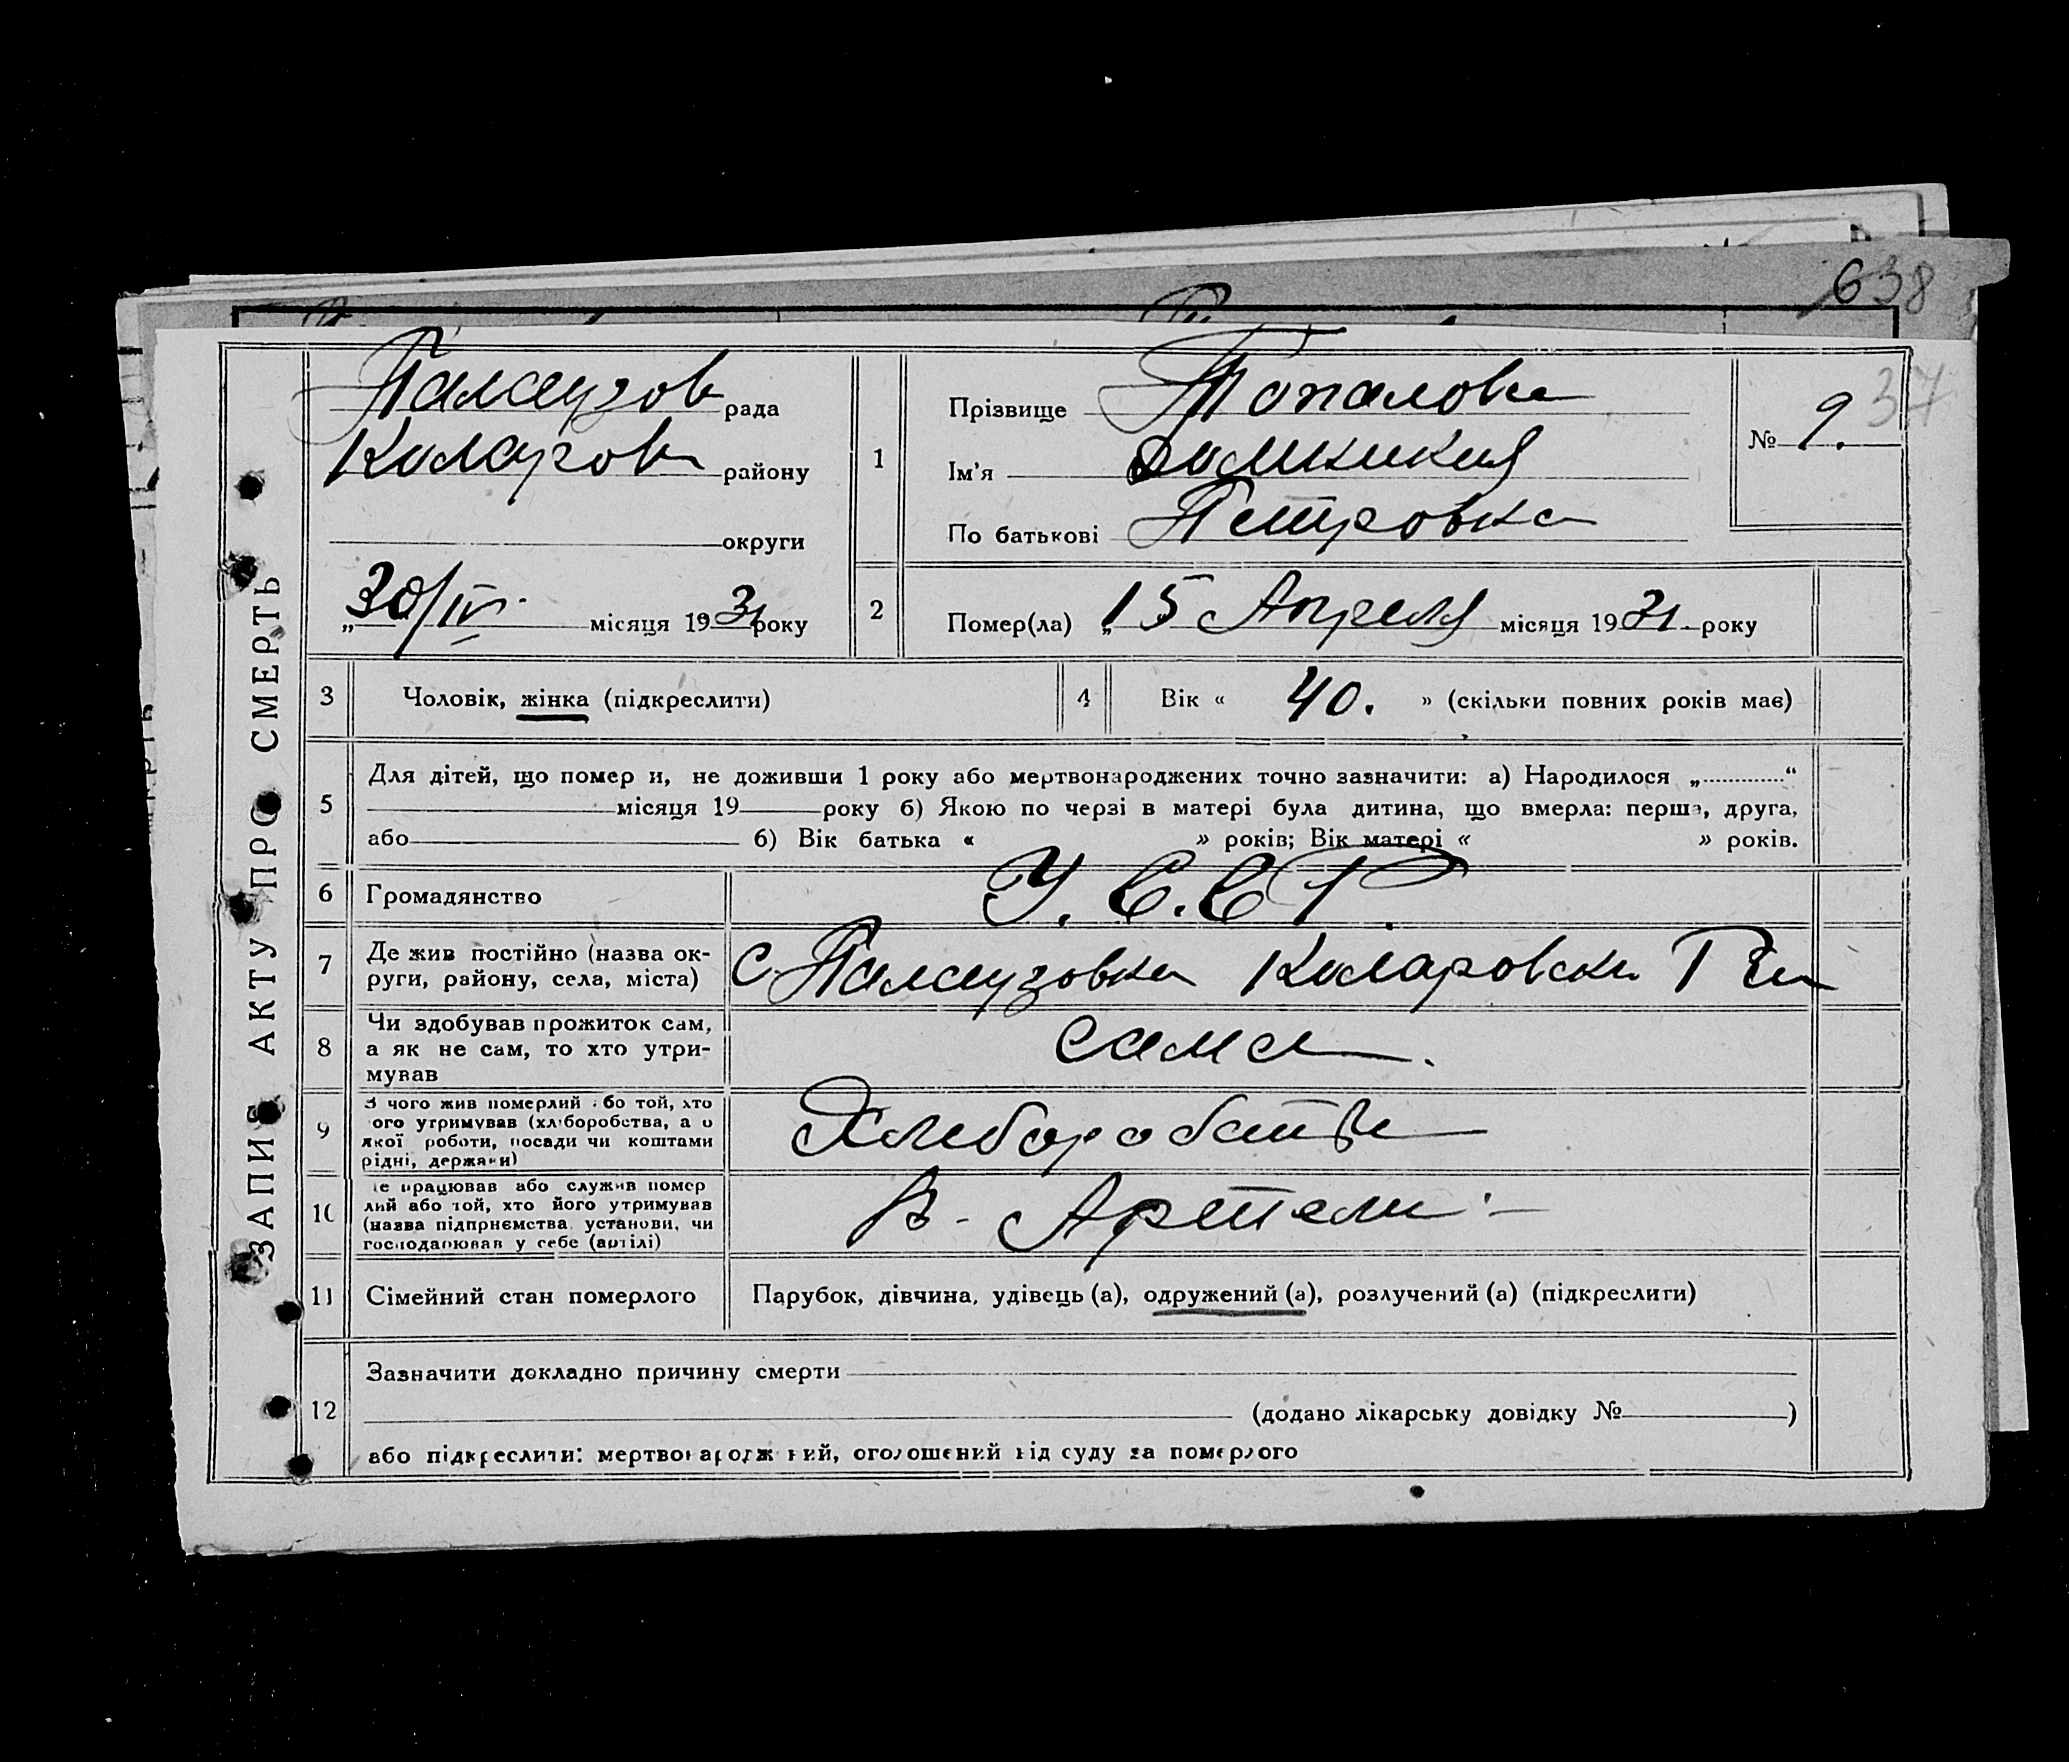 638
37
ЗАПИС АКТУ ПРО СМЕРТЬ
Палаузов рада
Коларов району
округи
„30/IV місяця 1931 року
1
Прізвище Топалова
Ім'я Домникия
По батькові Петровна
№ 9.
2
Помер(ла) „15 Апреля місяця 1931 року
3 Чоловік, жінка (підкреслити)
4 Вік « 40. » (скільки повних років має)
5
Для дітей, що помер и, не доживши 1 року або мертвонароджених точно зазначити: а) Народилося „............“
місяця 19 року б) Якою по черзі в матері була дитина, що вмерла: перша, друга,
або б) Вік батька « » років; Вік матері « » років.
6 Громадянство У.С.С.Р.
7 Де жив постійно (назва ок-
руги, району, села, міста) с Палаузовка Коларовски
8 Чи здобував прожиток сам,
а як не сам, то хто утри-
мував
сама.
9 З чого жив померлий або той, хто
ого утримував (хліборобства, а о
якої роботи, посади чи коштами
рідні, держави)
10 е працював або служив помер
лий або той, хто його утримував
(назва підприємства, установи, чи
господарював у себе (артілі)
в Артели
11 Сімейний стан померлого Парубок, дівчина, удівець (а), одружений (а), розлучений (а) (підкреслити)
12
Зазначити докладно причину смерти
(додано лікарську довідку № )
або підкреслити: мертвонароджений, оголошений від суду за померлого